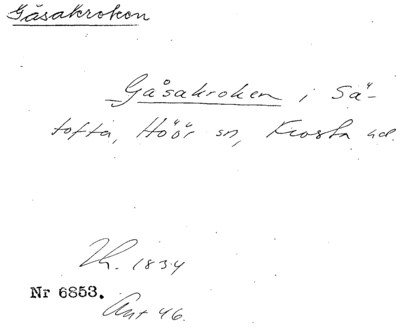 Gåsakroken
Gåsakroken i Sä-
tofta, Höör sn, Frosta hd.
Th. 1834
Nr 6853.
Ant 46.